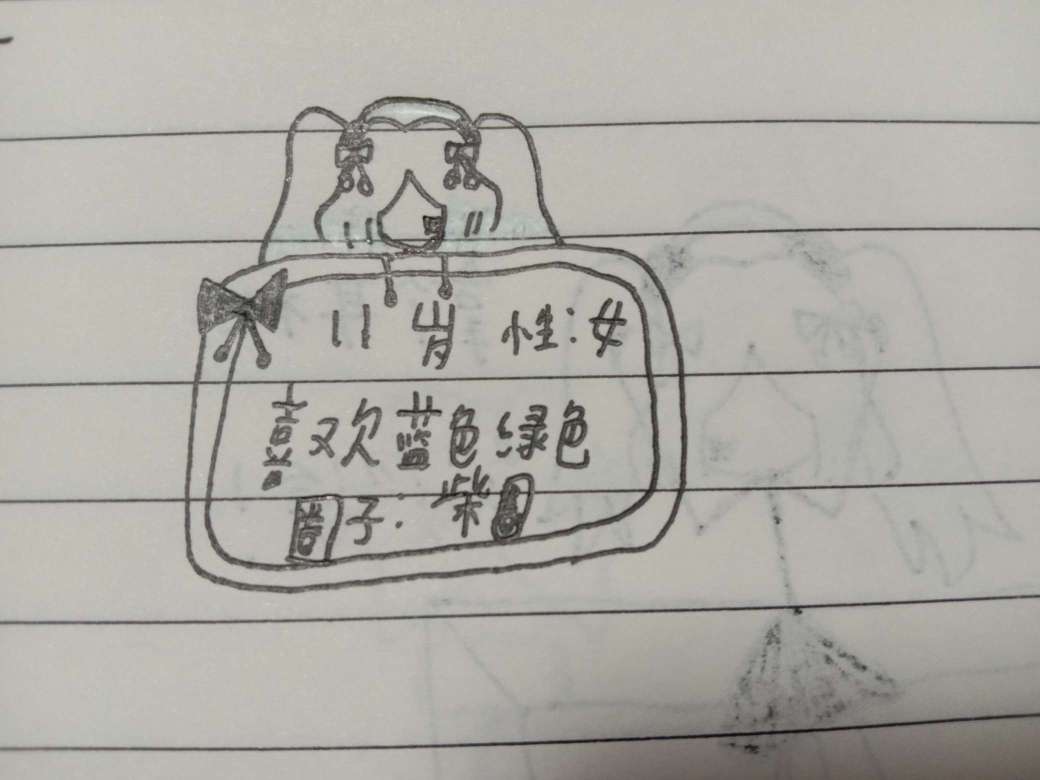 11岁 性:女
喜欢蓝色绿色
圈子:柴圈